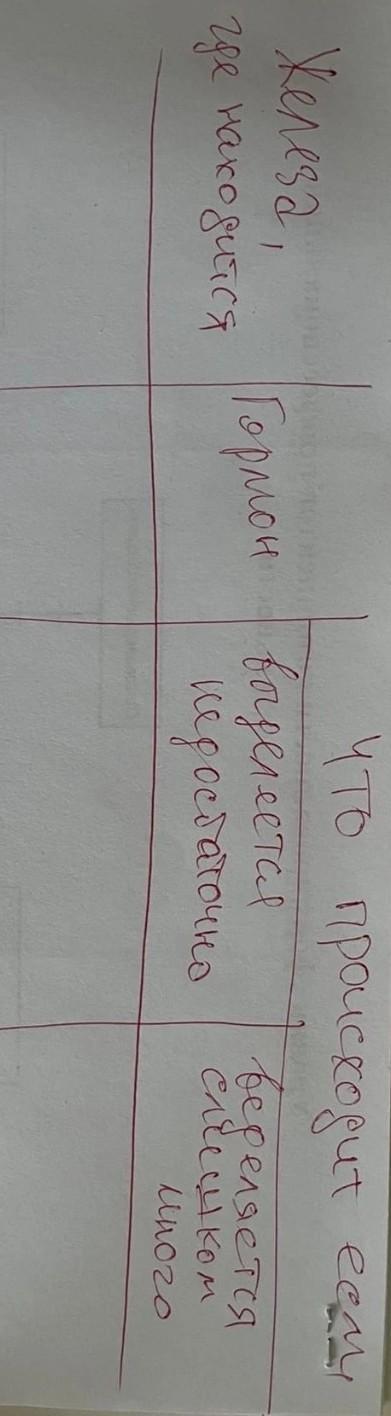 Железа,
где находится
Гормон
Что происходит если
выделяется
недостаточно
веделяется
слишком
много